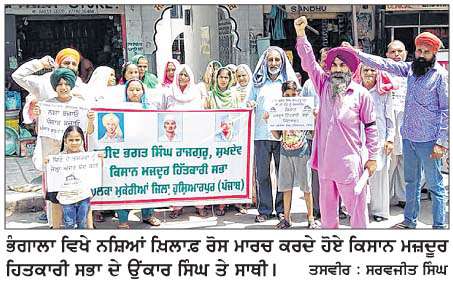 SANDHU
ਹੀਦ ਭਗਤ ਸਿੰਘ ਰਾਜਗੁਰੂ, ਸੁਖਦੇਵ
ਕਿਸਾਨ ਮਜਦੂਰ ਹਿੱਤਕਾਰੀ ਸਭਾ
ਲਕਾ ਮੁਕੇਰੀਆਂ ਜ਼ਿਲਾ ਹੁਸ਼ਿਆਰਪੁਰ (ਪੰਜਾਬ)
ਭੰਗਾਲਾ ਵਿਖੇ ਨਸ਼ਿਆਂ ਖ਼ਿਲਾਫ਼ ਰੋਸ ਮਾਰਚ ਕਰਦੇ ਹੋਏ ਕਿਸਾਨ ਮਜ਼ਦੂਰ
ਹਿਤਕਾਰੀ ਸਭਾ ਦੇ ਉਂਕਾਰ ਸਿੰਘ ਤੇ ਸਾਥੀ। ਤਸਵੀਰ : ਸਰਵਜੀਤ ਸਿੰਘ